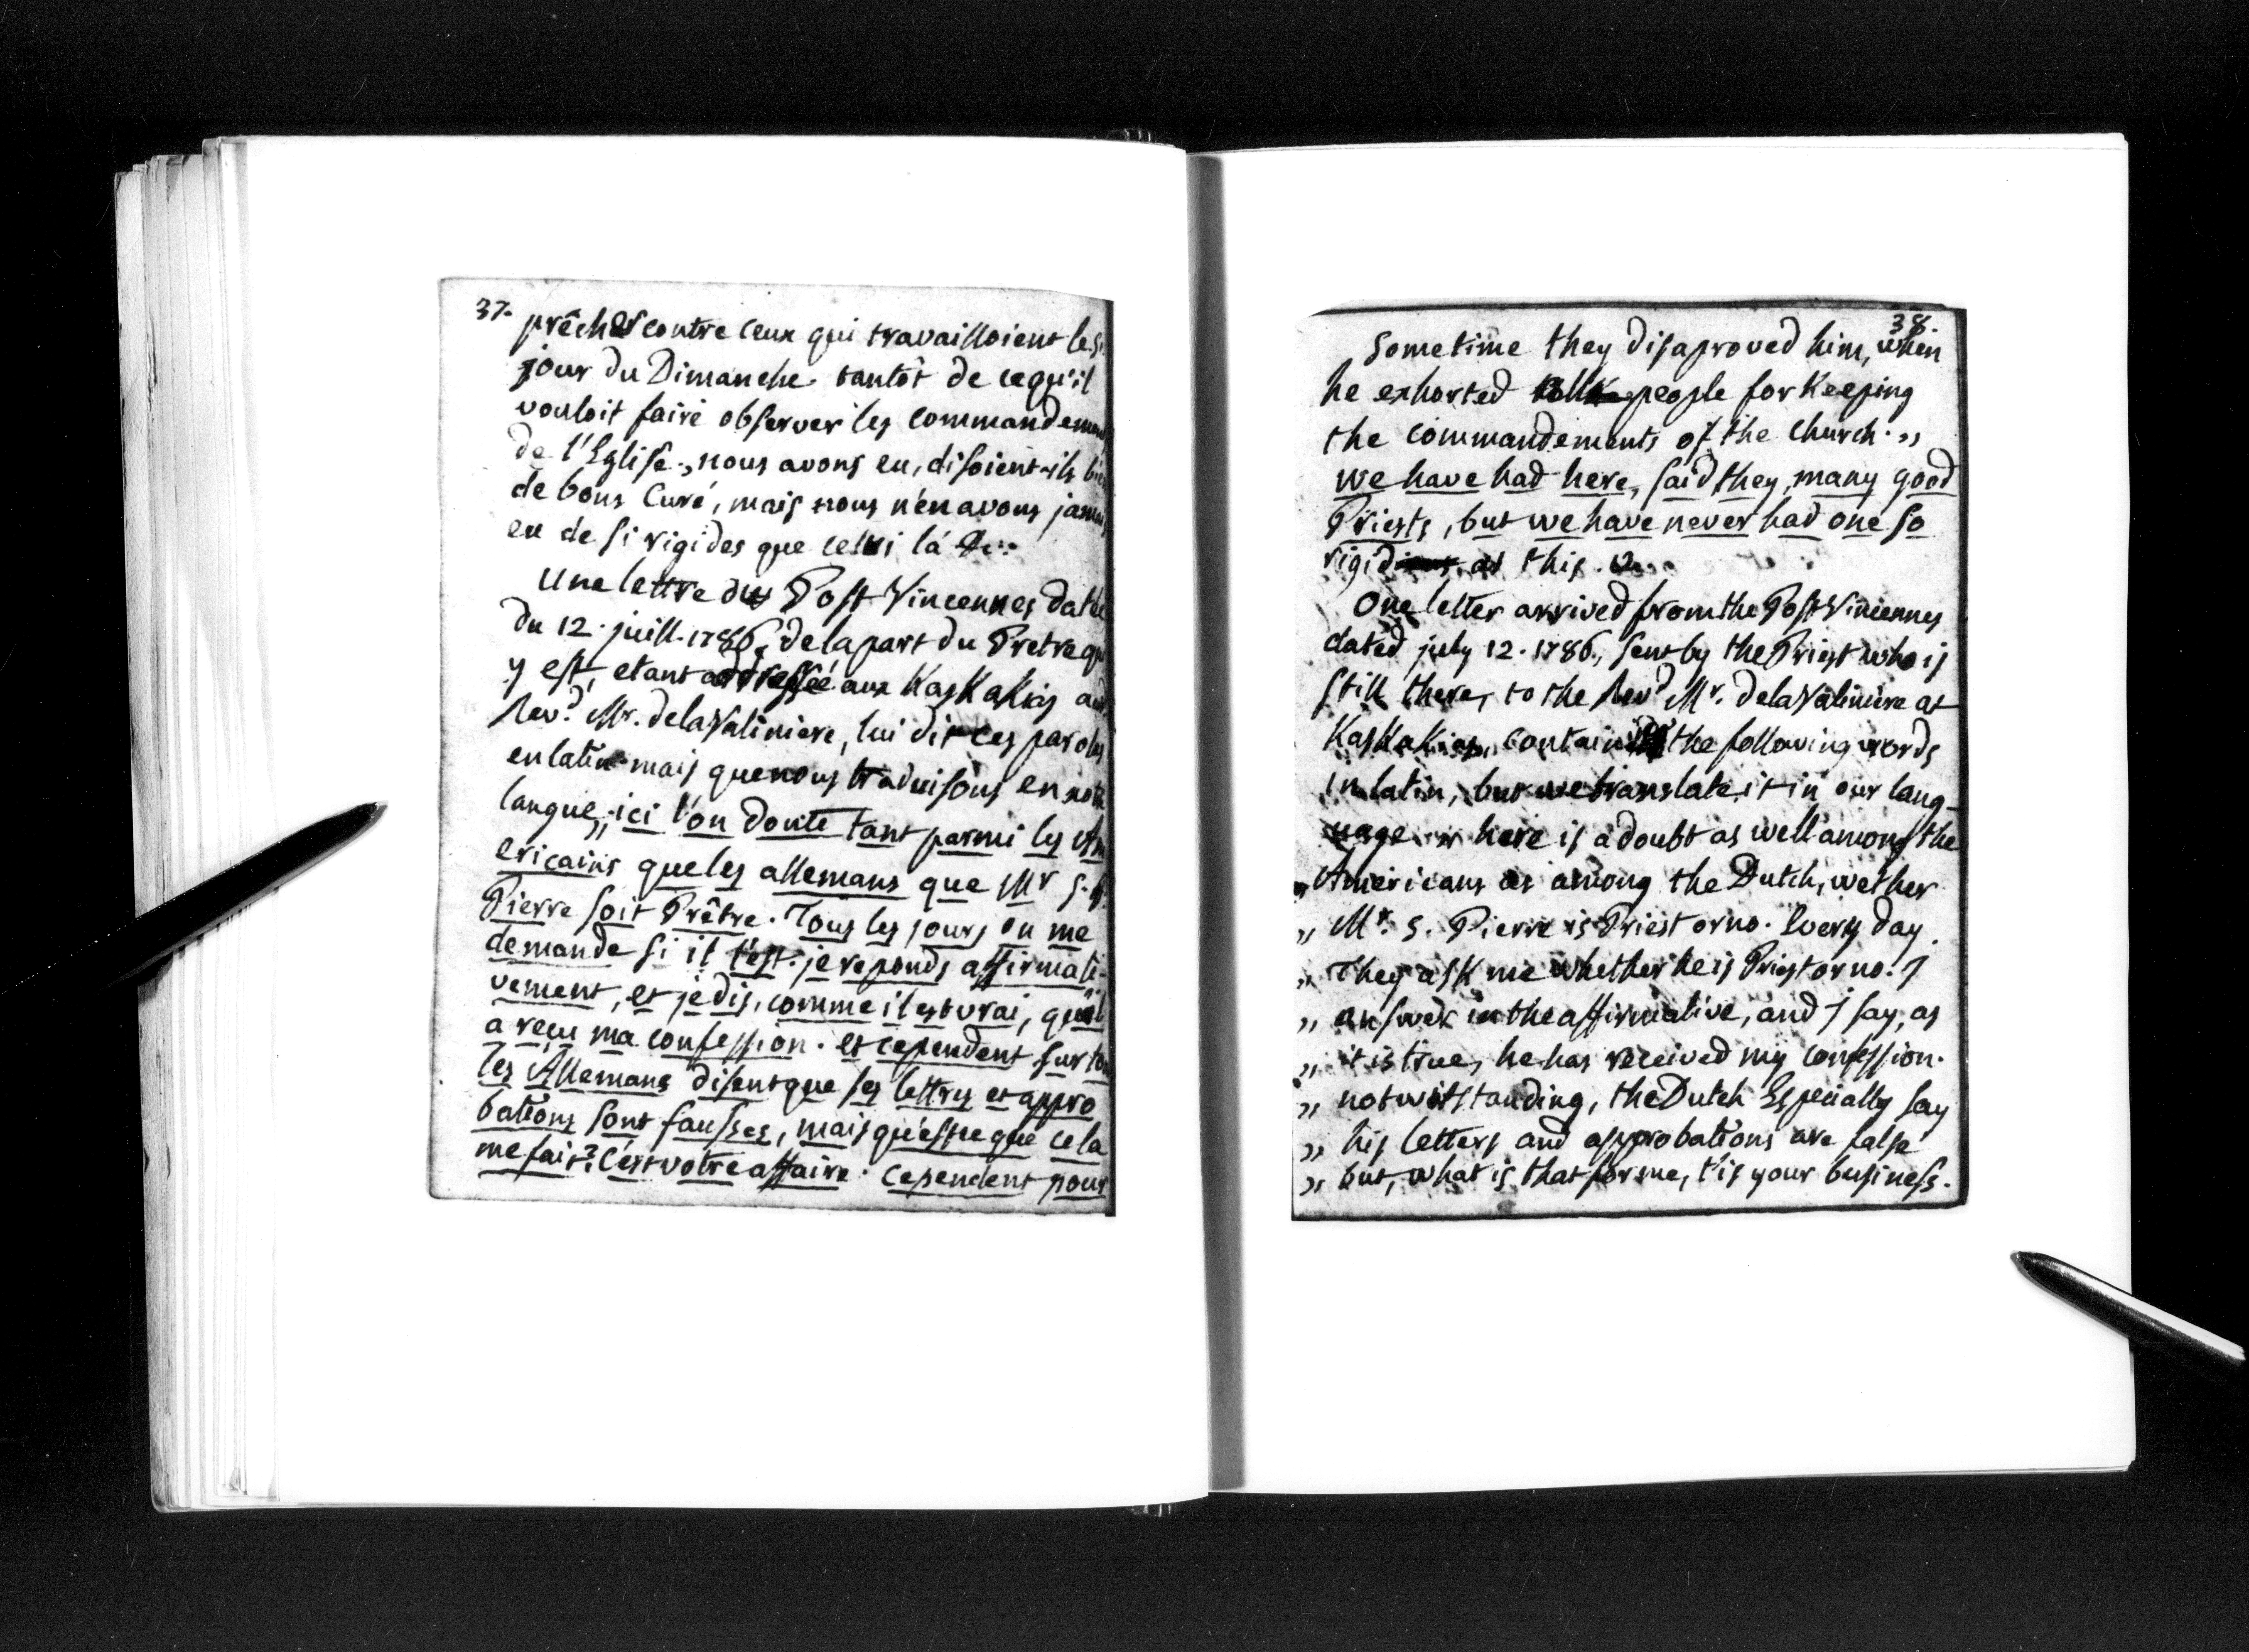 37.
prêcher contre ceux qui travailloient le S.
jour du Dimanche. tantôt de ce qu'il
vouloit faire observer les commandemen
de l'Eglise., nous avons eu, disoient-ils bien
de bons Curé, mais nous n'en avons jamais
eu de si rigides que celui lá &c:
Une lettre du Post Vincennes datée
du 12. juill. 1786, de la part du Pretre qui
y est, etant addressée aux Kaskakias au
Rev.d Mr. de la Valiniere, lui dit ces paroles
en latin mais que nous traduisons en notre
langue, „ ici l'on doute tant parmi les Am
ericains que les allemans que Mr S.
Pierre soit Prêtre. Tous les jours on me
demande si il l'est. je reponds affirmati-
vement, et je dis, comme il est vrai, qu'il
a reçu ma confession. et cependent sur tout
les Allemans disent que ses lettres et appro
bations sont fausses, mais qu'estce que cela
me fait? c'est votre affaire. cependent pour
38.
Sometime they disaproved him, when
he exhorted people for Keeping
the commandements of the church. „
we have had here, said they, many good
Priests, but we have never had one so
rigid as this. &c.
One letter arrived from the Post Vincennes
dated july 12. 1786., sent by the Priest who is
still there, to the Rev.d Mr. de la Valiniere at
Kaskakias, contain the following words
in latin, but we translate it in our lang-
uage „ here is a doubt as well among the
„ Americans as among the Dutch, wether
„ Mr. S. Pierre is Priest or no. Every day
„ They ask me whether he is Priest or no. J
„ answer in the affirmative, and J say, as
„ it is true, he has received my confession.
„ notwitstanding, the Dutch Especially say
„ his letters and approbations are false
„ but, what is that for me, t'is your business.